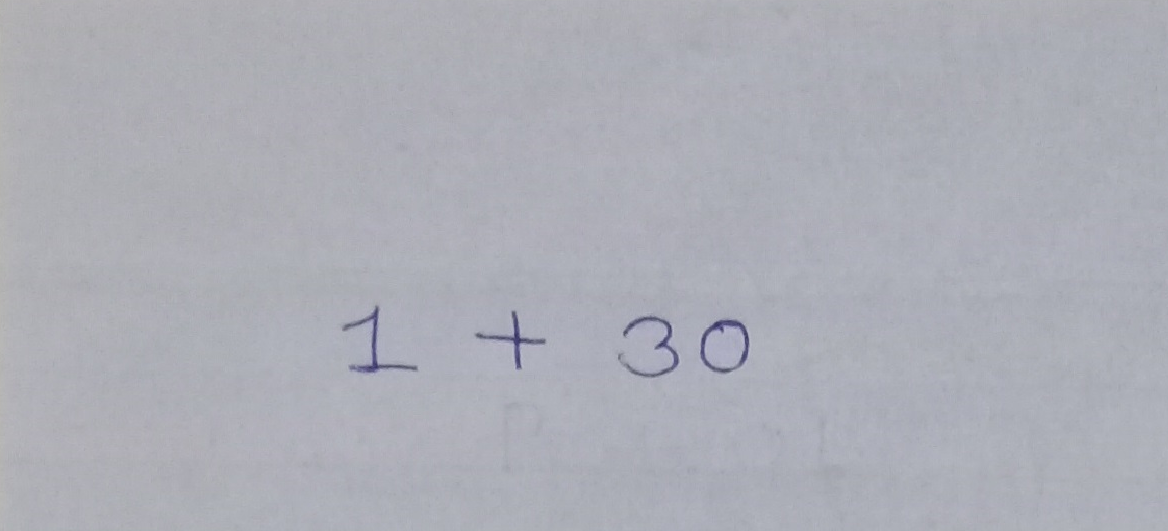 1 + 30